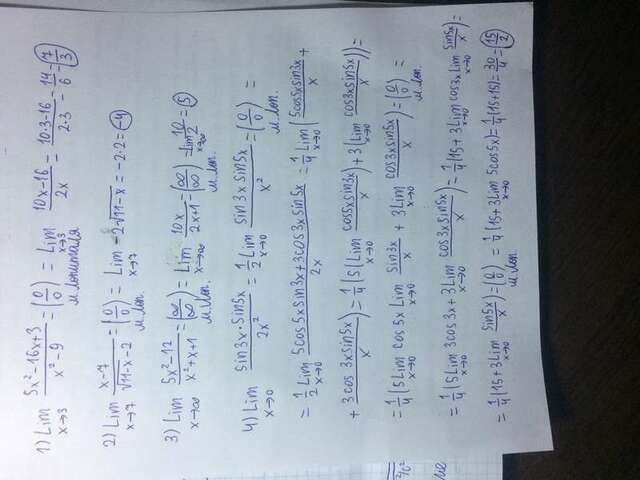 1) Lim x→3 (5x²-16x+3)/(x²-9) = (0/0) м.Лопиталя = Lim x→3 (10x-16)/(2x) = (10·3-16)/(2·3) = 14/6 = 7/3
2) Lim x→7 (x-7)/(√(11-x)-2) = (0/0) м.Лоп. = Lim x→7 -2√(11-x) = -2·2 = -4
3) Lim x→∞ (5x²-12)/(x²+x+1) = (∞/∞) м.Лоп. = Lim x→∞ 10x/(2x+1) = (∞/∞) м.Лоп. = Lim x→∞ 10/2 = 5
4) Lim x→0 (sin3x·sin5x)/(2x²) = 1/2 Lim x→0 (sin3x sin5x)/x² = (0/0) м.Лоп. =
= 1/2 Lim x→0 (5cos5x sin3x+3cos3x sin5x)/(2x) = 1/4 Lim x→0 ((5cos5x sin3x)/x +
+ (3cos3x sin5x)/x) = 1/4 (5(Lim x→0 (cos5x sin3x)/x) + 3(Lim x→0 (cos3x sin5x)/x)) =
= 1/4 (5Lim x→0 cos5x Lim x→0 sin3x/x + 3Lim x→0 (cos3x sin5x)/x) = (0/0) м.Лоп. =
= 1/4 (5Lim x→0 3cos3x + 3Lim x→0 (cos3x sin5x)/x) = 1/4 (15+3Lim x→0 cos3x Lim x→0 sin5x/x) =
= 1/4 (15+3Lim x→0 sin5x/x) = (0/0) м.Лоп. = 1/4 (15+3Lim x→0 5cos5x) = 1/4 (15+15) = 30/4 = 15/2